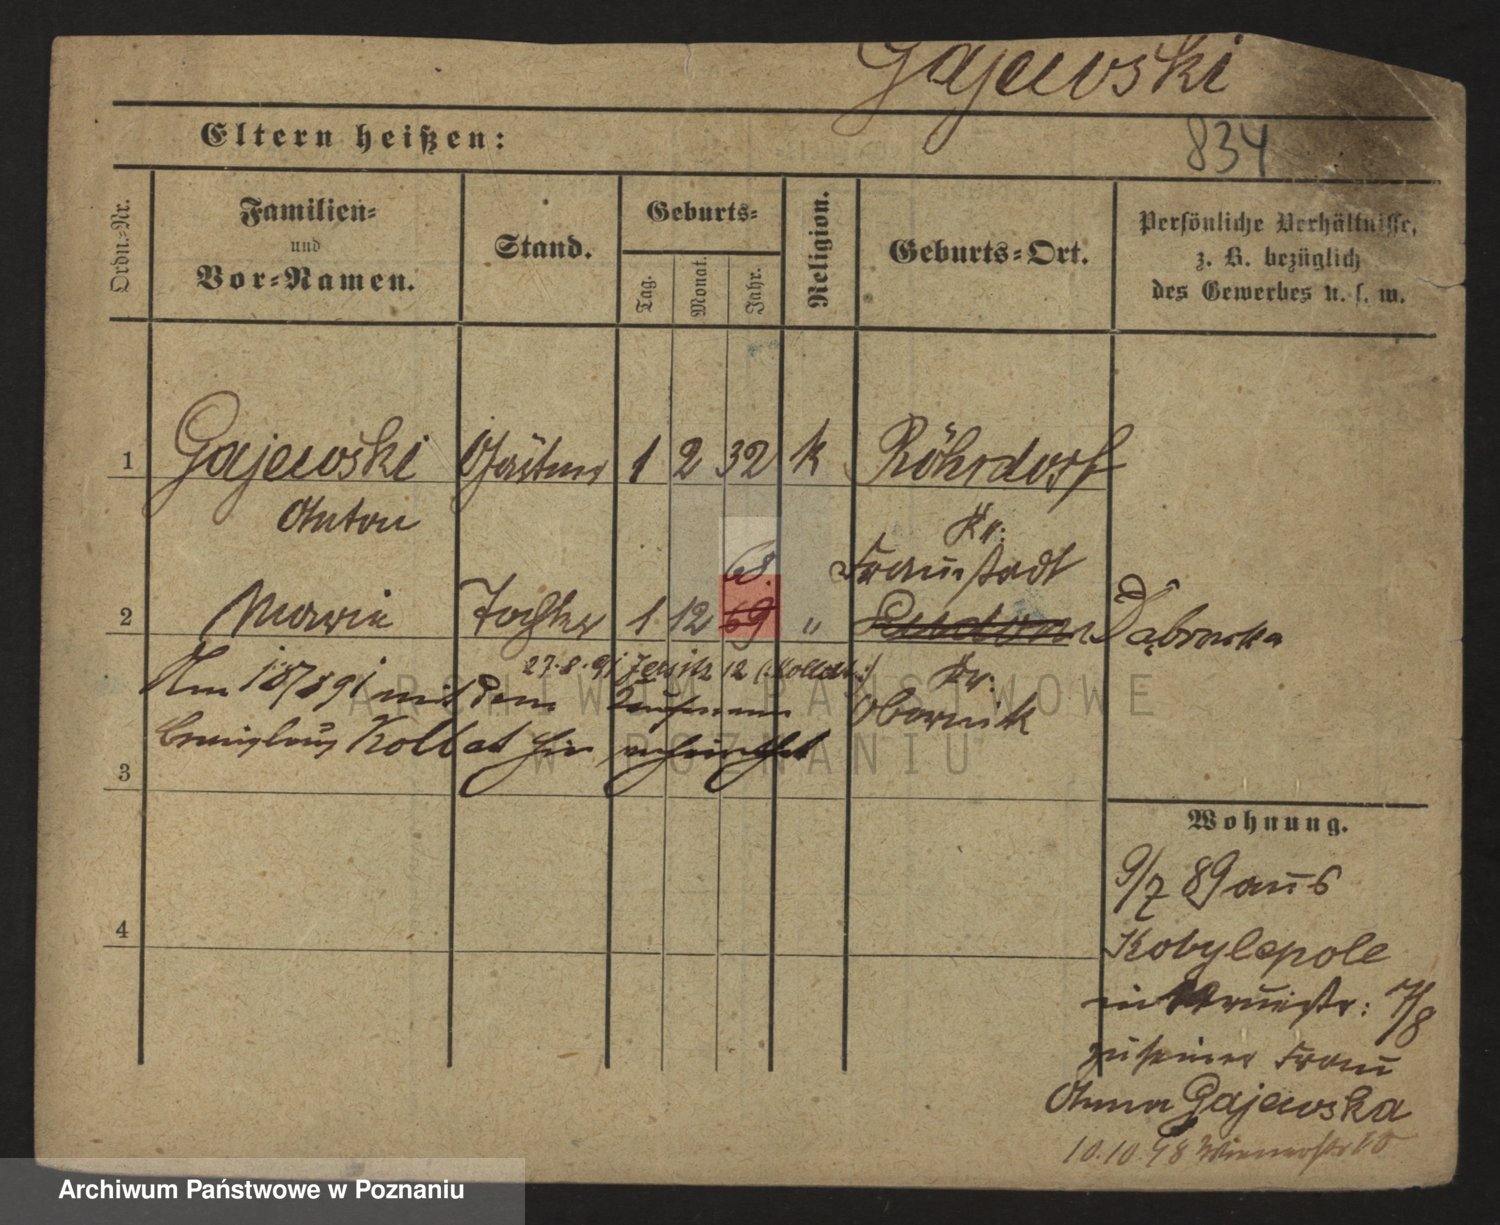 Gajewski
834
Eltern heißen:
Ordn.-Nr.
Familien-
und
Vor-Namen.
Stand.
Geburts-
Tag.
Monat.
Jahr.
Religion.
Geburts-Ort.
Persönliche Verhältnisse,
z. B. bezüglich
des Gewerbes u. s. w.
1 Gajewski Gärtner 1 2 32 k Röhrdorf
Anton Kr.
68. Fraustadt
2 Marie Tochter 1 12 69 " Dąbrowka
27.8.91 Jersitz 12 (Kollat)
Kr.
Am 18/8 91 mit dem Obornik
Kollat hier
3
Wohnung.
9/7 89 aus
4
Kobylepole
7/8
zu seiner Frau
Anna Gajewska
10.10.98 Wienerstr
ARCHIWUM PAŃSTWOWE
W POZNANIU
Archiwum Państwowe w Poznaniu